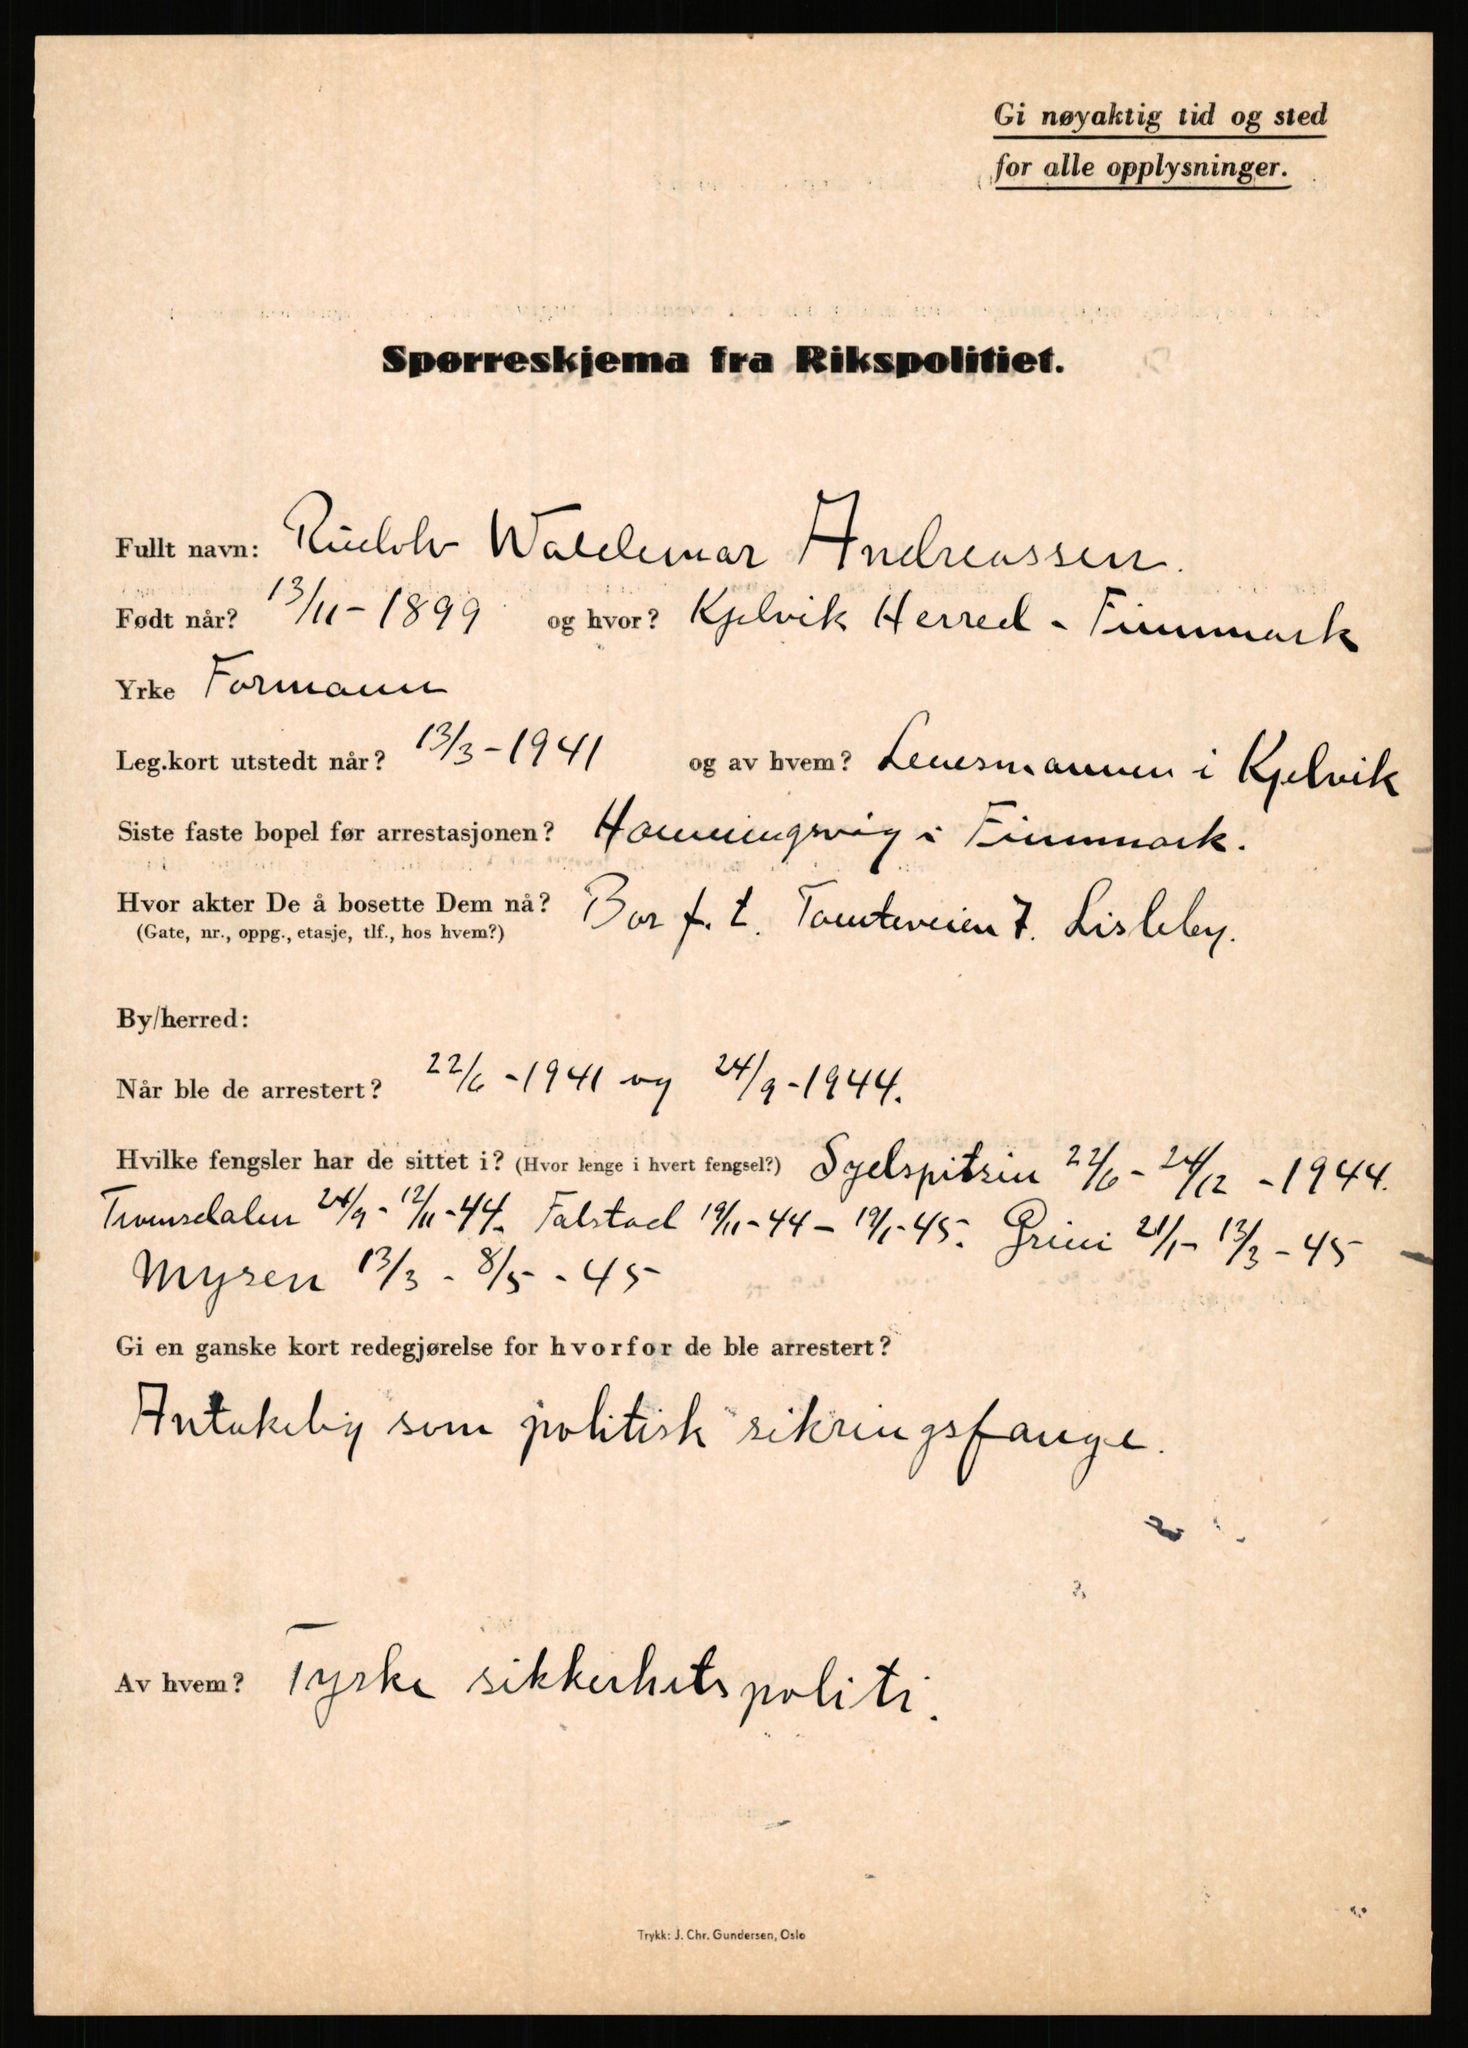 Gi nøyaktig tid og sted
for alle opplysninger.
Spørreskjema fra Rikspolitiet.
Fullt navn: Rudolv Waldemar Andreassen.
Født når? 13/11-1899 og hvor? Kjelvik Herred - Finnmark
Yrke Formann
Leg.kort utstedt når? 13/3-1941 og av hvem? Lensmannen i Kjelvik
Siste faste bopel før arrestasjonen? Honningsvåg i Finnmark.
Hvor akter De å bosette Dem nå? Bor f. t. Tomteveien 7. Lisleby.
(Gate, nr., oppg., etasje, tlf., hos hvem?)
By/herred:
Når ble de arrestert? 22/6-1941 og 24/9-1944.
Hvilke fengsler har de sittet i? (Hvor lenge i hvert fengsel?) Sydspitsin 22/6 - 24/12 - 1944.
Tromsdalen 24/9 - 12/11-44. Falstad 19/11-44 - 19/1-45. Grini 21/1- 13/3-45
Mysen 13/3 - 8/5 - 45
Gi en ganske kort redegjørelse for hvorfor de ble arrestert?
som politisk sikringsfange.
Av hvem? Tyske sikkerhetspoliti.
Trykk: J. Chr. Gundersen, Oslo